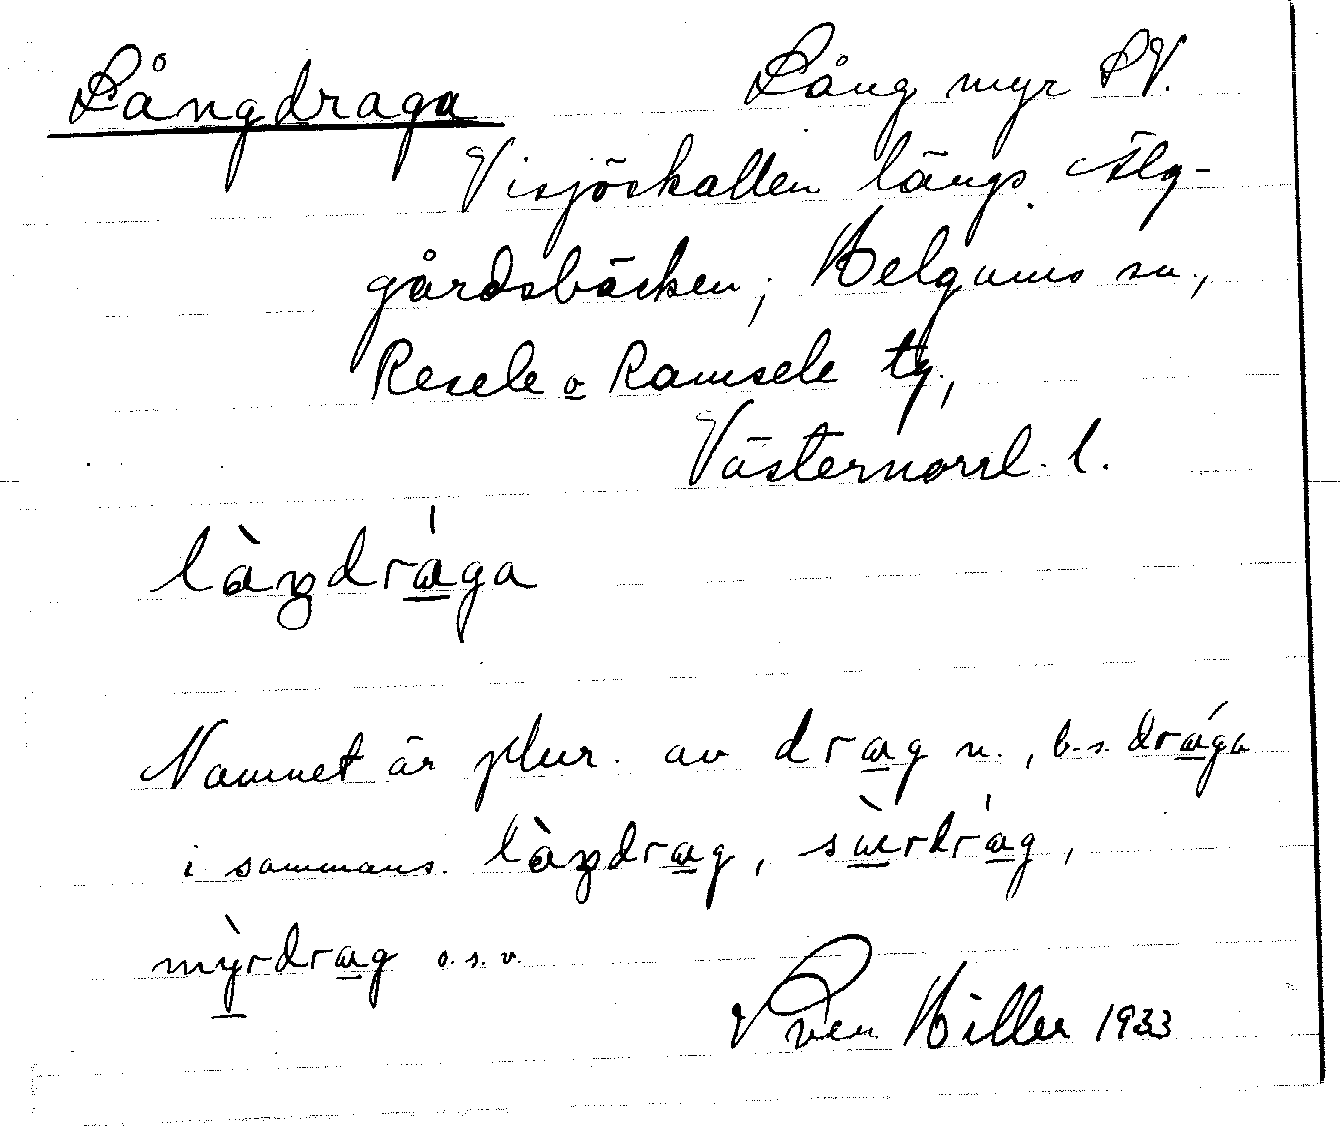 Långdraga Lång myr SV.
Visjöskallen längs Älg-
gårdsbäcken; Helgums sn.,
Resele o Ramsele tg.,
Västernorrl. l.
là̀ŋdrága
Namnet är plur. av drag n., b.s. drága
i sammans. làŋdrag, sùrdrág,
mỳrdrag o.s.v.
Sven Hiller 1933